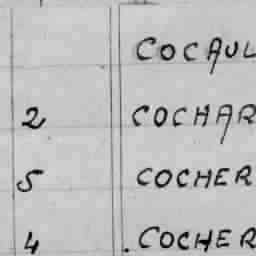 COCAUL
2 COCHAR
5 COCHER
4 . COCHER